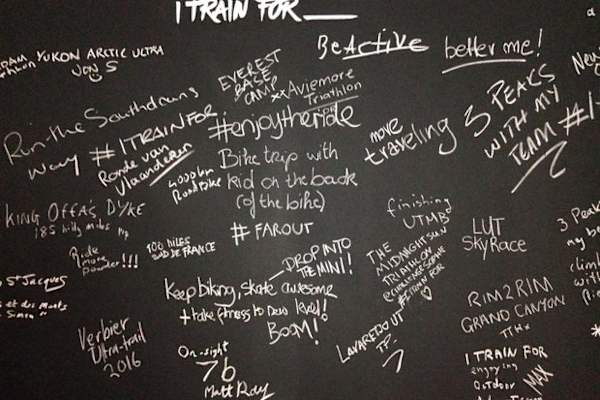 I TRAIN FOR
YUKON ARCTIC ULTRA
JON S
BeActive
better me!
EVEREST
BASE
CAMP
xx Aviemore
Triathlon
Run the Southdowns
Way
#ITRAINFOR
Ronde van
Vlaanderen
#enjoytheride
move
travelling
3 PEAKS
WITH MY
TEAM #I-
Bike trip with
kid on the back
(of the bike)
# FAROUT
KING OFFA'S DYKE
185 hilly miles
Ride
more
powder!!!
100 miles
SUD DE FRANCE
DROP INTO
THE MINI!
Keep biking, skate awesome
+ take fitness to new level!
BOOM!
finishing
UTMB
THE
MIDNIGHT SUN
TRIATHLON
#ITRAIN FOR
LUT
SkyRace
RIM2RIM
GRAND CANYON
LAVAREDO UT
St Jacques
Verbier
Ultra-trail
2016
On-sight
7b
Matt Ray
I TRAIN FOR
enjoying
Outdoor
MAX
3 Peak
my be
climb
with